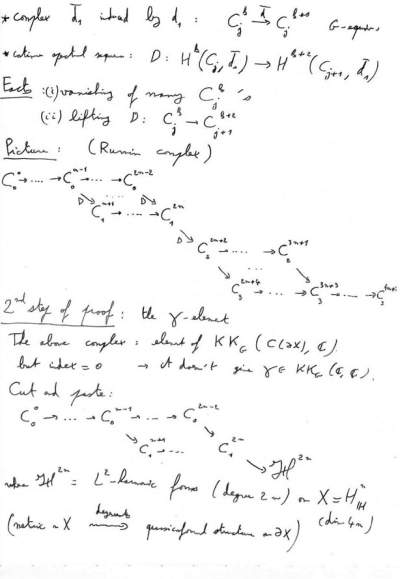 * complex d̄₁ induced by d₁ : C_j^k →^{d̄} C_j^{k+1} G-equiv.
* spectral : D : H^k(C_j, d̄₁) → H^{k+2}(C_{j+1}, d̄₁)
Facts : (i) vanishing of many C_j^k 's
(ii) lifting D : C_j^k → C_{j+1}^{k+2}
Picture : (Rumin complex)
C_0^0 → .... → C_0^{n-1} → ... → C_0^{2n-2}
D↘ D↘
C_1^{n+1} → ..... → C_1^{2n}
D↘ C_2^{2n+2} .... → C_2^{3n+1}
↘ ... ↘
C_3^{2n+4} ... → C_3^{3n+3} → .... → C_3
2nd step of proof : the γ-element
The above complex : element of KK_G (C(∂X), ℂ)
but index = 0 → it doesn't give γ ∈ KK_G (ℂ, ℂ).
Cut and paste :
C_0^0 → ... → C_0^{n-1} → ... → C_0^{2n-2}
↘ C_1^{n+1} → ... ↘ C_1^{2n}
↘ ℋ^{2n}
where ℋ^{2n} = L²-harmonic forms (degree 2n) on X = H_ℍ^n
(dim 4n)
(metric on X ⟶ quasiconformal structure on ∂X)